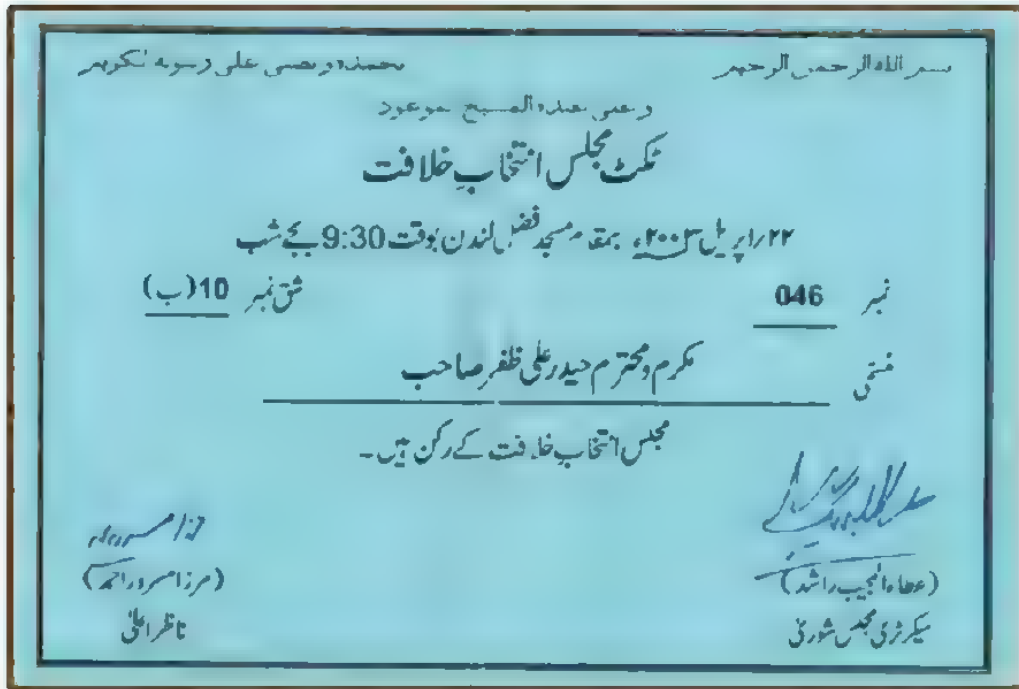 بسم الله الرحمن الرحيم نحمده ونصلى على رسوله الكريم
وعلى عبده المسيح الموعود
ٹکٹ مجلس انتخابِ خلافت
۲۲/اپریل ۲۰۰۳ء بمقام مسجد فضل لندن بوقت 9:30 بجے شب
نمبر 046 شق نمبر 10(ب)
مکرم و محترم حیدر علی ظفر صاحب
مجلس انتخابِ خلافت کے رکن ہیں۔
(عطاء المجیب راشد) (مرزا مسرور احمد)
سیکرٹری مجلس شوریٰ ناظر اعلیٰ